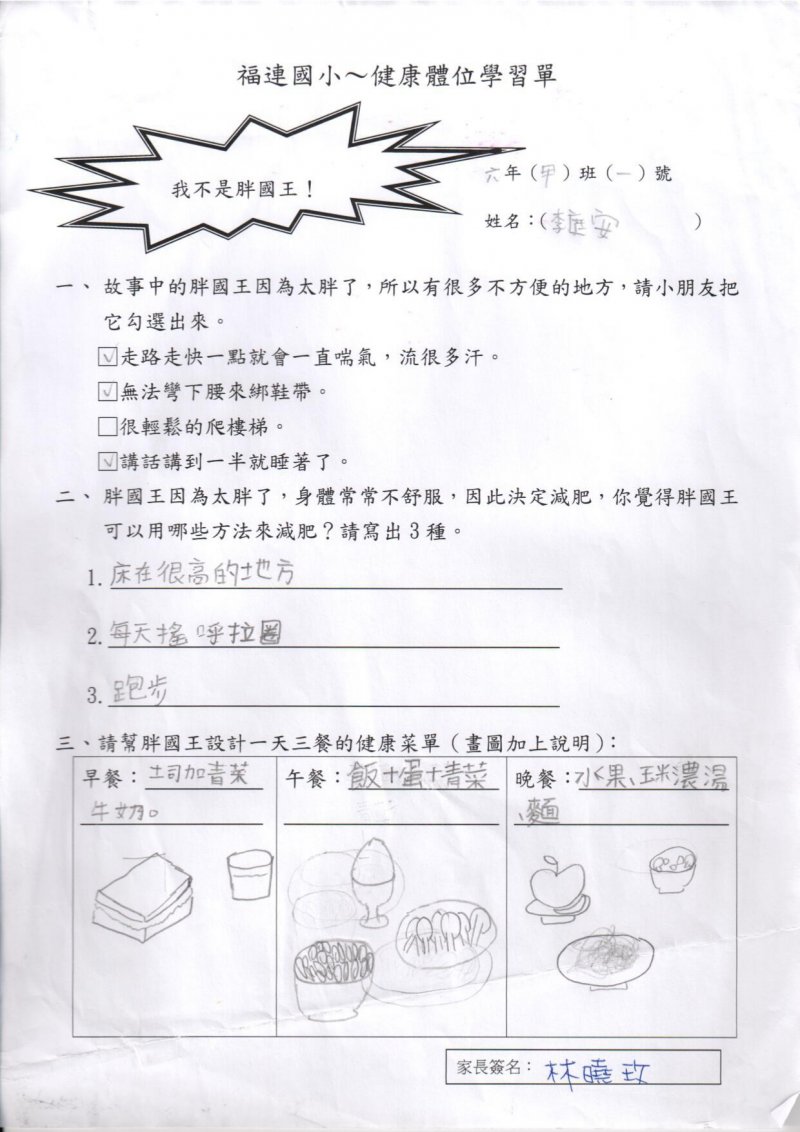 福連國小～健康體位學習單
我不是胖國王！
六年（甲）班（一）號
姓名：（李庭安）
一、故事中的胖國王因為太胖了，所以有很多不方便的地方，請小朋友把
它勾選出來。
☑走路走快一點就會一直喘氣，流很多汗。
☑無法彎下腰來綁鞋帶。
□很輕鬆的爬樓梯。
☑講話講到一半就睡著了。
二、胖國王因為太胖了，身體常常不舒服，因此決定減肥，你覺得胖國王
可以用哪些方法來減肥？請寫出3種。
1.床在很高的地方
2.每天搖呼拉圈
3.跑步
三、請幫胖國王設計一天三餐的健康菜單（畫圖加上說明）：
早餐：土司加青菜
牛奶。
午餐：飯+蛋+青菜
晚餐：水果、玉米濃湯
、麵
家長簽名：林曉玫